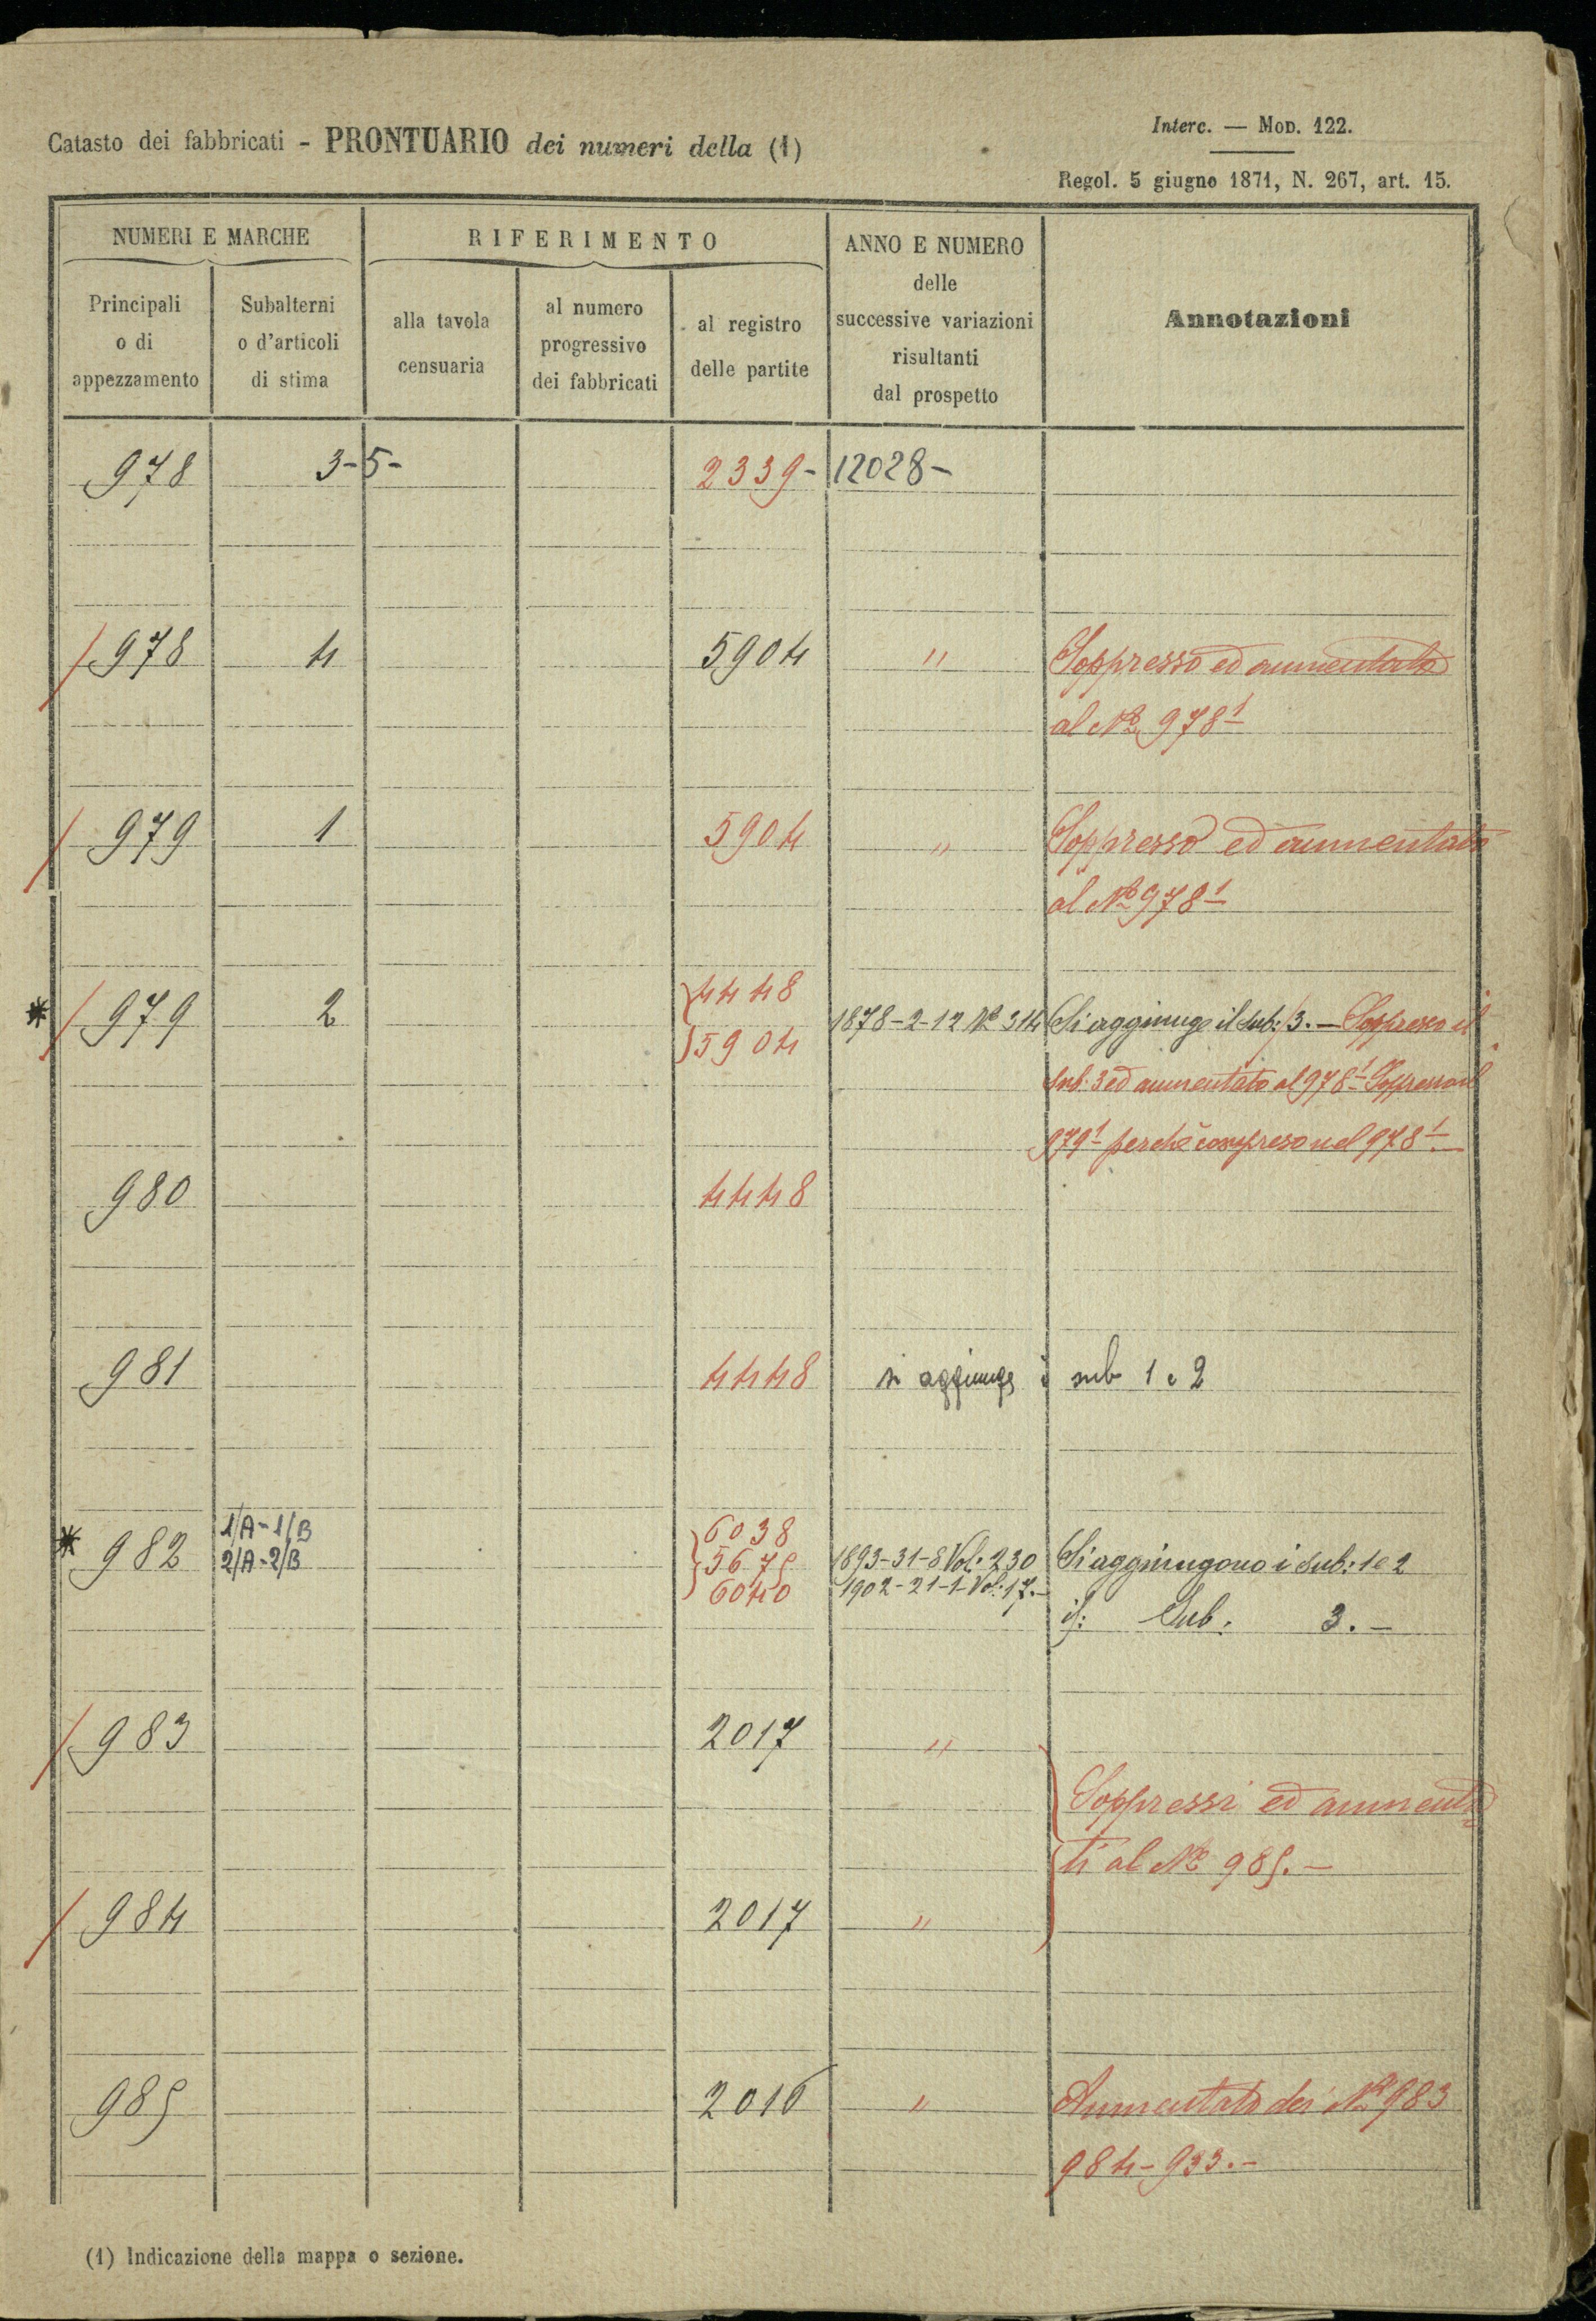 Catasto dei fabbricati - PRONTUARIO dei numeri della (1)
Interc. — Mod. 122.
Regol. 5 giugno 1871, N. 267, art. 15.
NUMERI E MARCHE
RIFERIMENTO
ANNO E NUMERO
delle
successive variazioni
risultanti
dal prospetto
Annotazioni
Principali
o di
appezzamento
Subalterni
o d'articoli
di stima
alla tavola
censuaria
al numero
progressivo
dei fabbricati
al registro
delle partite
978 3-5- 2339- 12028-
/978 4 5904 " Soppresso ed aumentato
al N° 978 1
/979 1 5904 " Soppresso ed aumentato
al N° 978 1
4448
* /979 2 5904 1878-2-12 N° 314 Si aggiunge il sub: 3. — Soppresso il
sub. 3 ed aumentato al 978 1 Soppresso il
979 1 perchè compreso nel 978 1
980 4448
981 4448 si aggiunge i sub 1 e 2
1/A-1/B 6038
* 982 2/A-2/B 5675 1893-31-8 Vol: 230 Si aggiungono i sub: 1 e 2
6040 1902-21-1-Vol: 17.-
if: Sub: 3.-
/983 2017 "
Soppressi ed aumenta
ti al N° 985.-
/984 2017 "
985 2016 " Aumentato dei N° 983
984-933.-
(1) Indicazione della mappa o sezione.